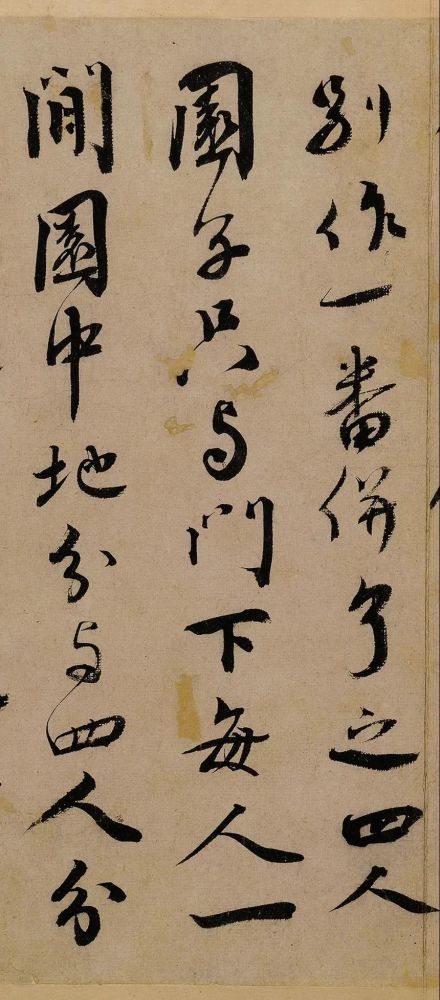 別作一番併了之四人
園子只与門下每人一
間園中地分与四人分